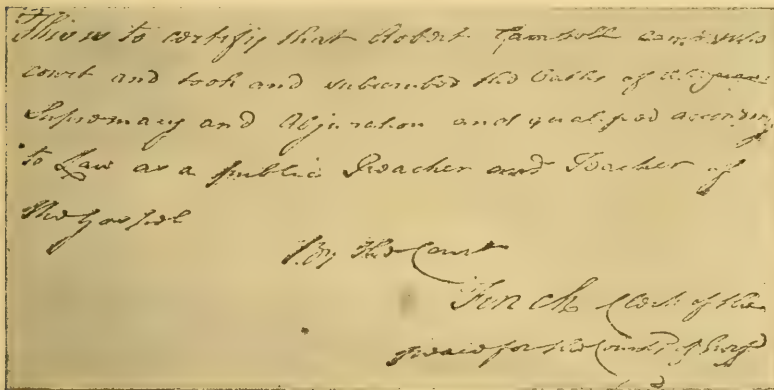 This is to certify that Robert Gamboll came into
court and took and subscribed the Oaths of Allegiance
Supremacy and Abjuration and qualified according
to Law as a public Preacher and Teacher of
the Gospel
By The Court
Finch Clerk of the
for the County of